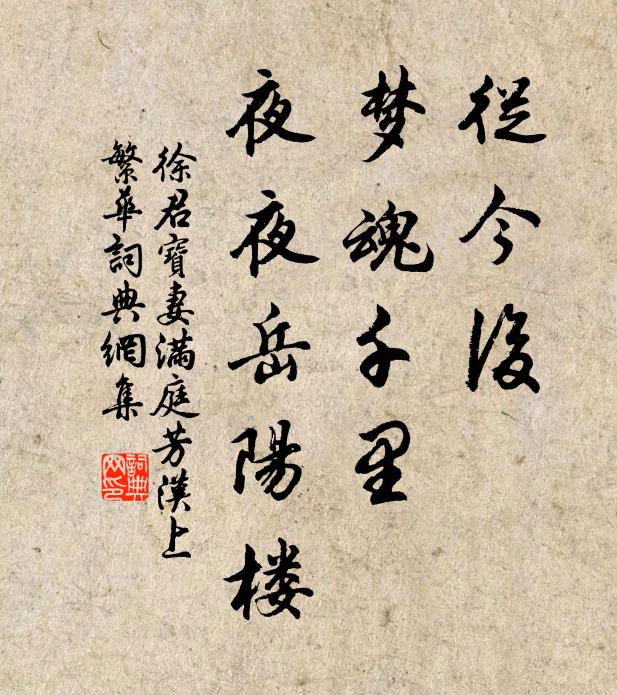 從今後
梦魂千里
夜夜岳陽楼
徐君寶妻滿庭芳漢上
繁華詞典網集
詞典网印